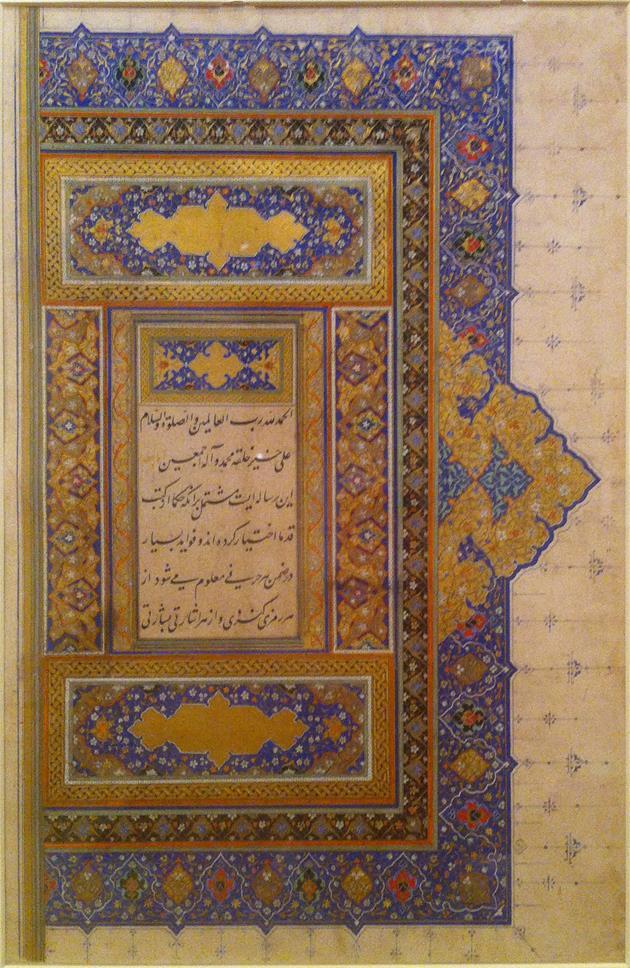 الحمدلله رب العالمین والصلوة والسلام
علی خیر خلقه محمد و آله اجمعین
این رساله ایست مشتمل برآنکه حکما از کتب
قدما اختیار کرده اند و فواید بسیار
در ضمن هر حرفی معلوم می شود از
هر رمزی کنزی و از هر اشارتی بشارتی